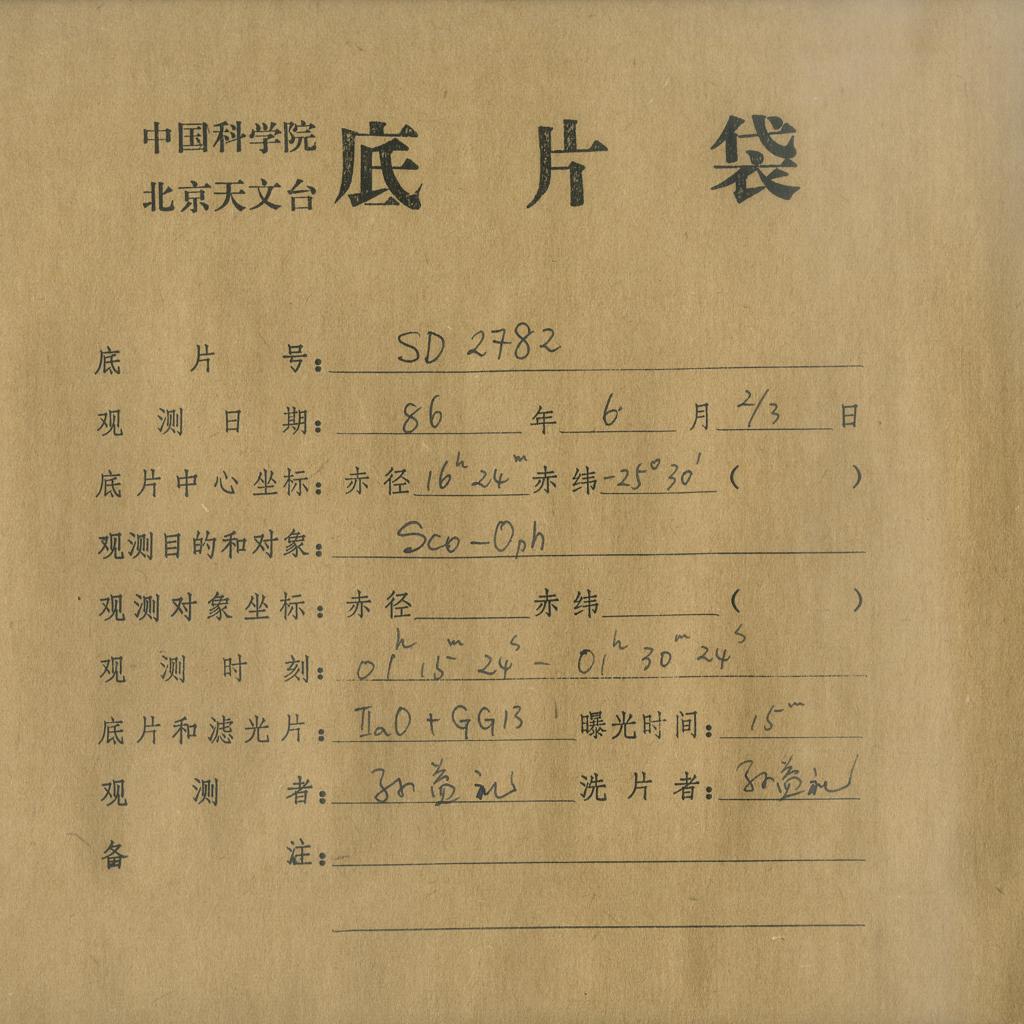 中国科学院
北京天文台
底片袋
底片号：SD 2782
观测日期：86年6月2/3日
底片中心坐标：赤径16ʰ24ᵐ赤纬-25°30′（ ）
观测目的和对象：Sco-Oph
观测对象坐标：赤径 赤纬 （ ）
观测时刻：01ʰ15ᵐ24ˢ - 01ʰ30ᵐ24ˢ
底片和滤光片：IIaO + GG13 曝光时间：15ᵐ
观测者：孙益礼 洗片者：孙益礼
备注：